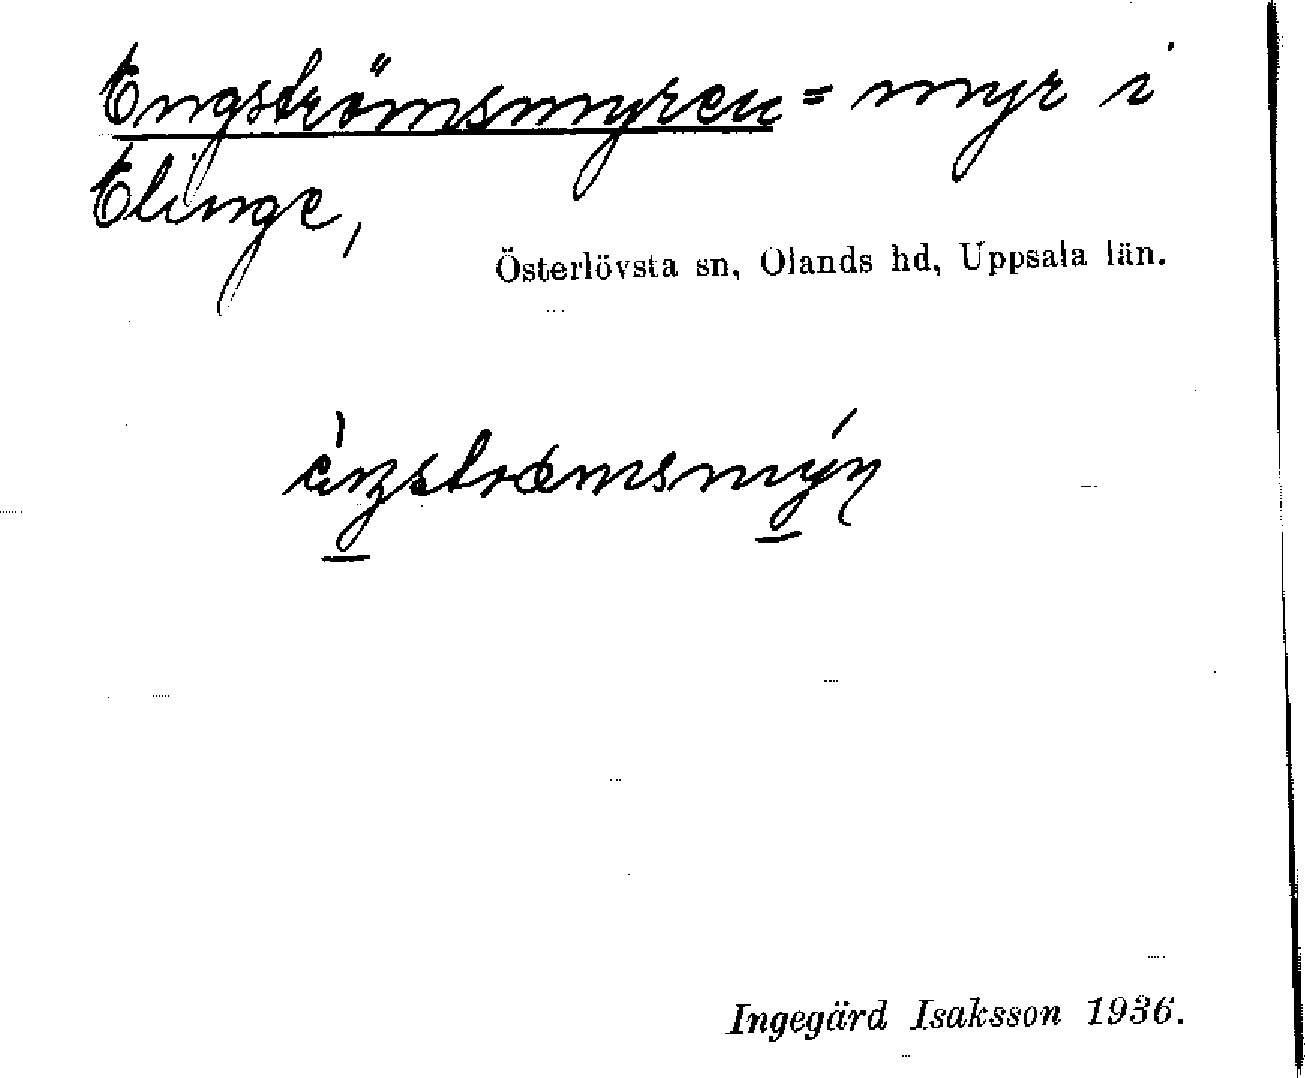 Engströmsmyren = myr i
Elinge,
Österlövsta sn, Olands hd, Uppsala län.
Ingegärd Isaksson 1936.